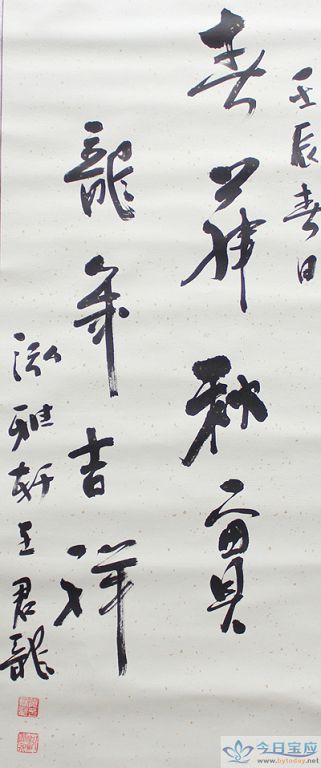 壬辰春日
春華秋實
龍年吉祥
泓雅轩王君龍
今日宝应
www.bytoday.net